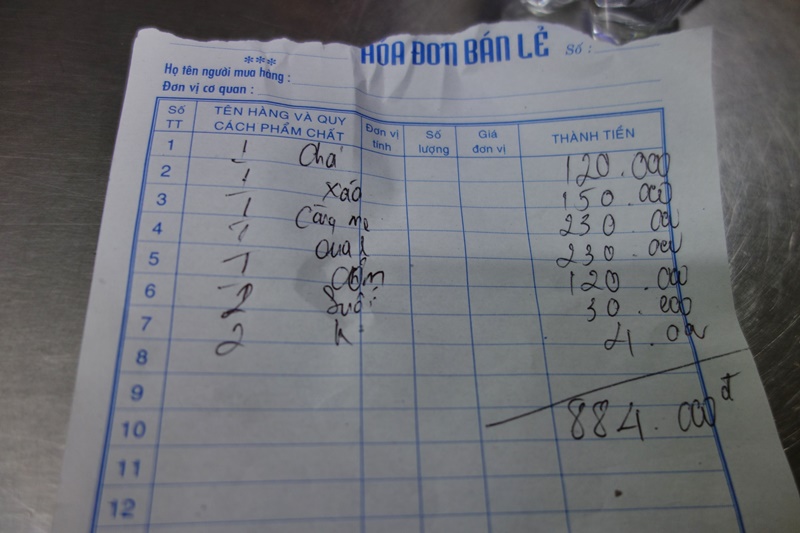 HÓA ĐƠN BÁN LẺ Số :
***
Họ tên người mua hàng :
Đơn vị cơ quan :
Số TT TÊN HÀNG VÀ QUY CÁCH PHẨM CHẤT Đơn vị tính Số lượng Giá đơn vị THÀNH TIỀN
1 1 Chả 120.000
2 1 xáo 150.000
3 1 Càng me 230.00
4 1 230.000
5 1 120.000
6 2 Suối 30.000
7 2 k 4.00
8
9
10 884.000đ
11
12